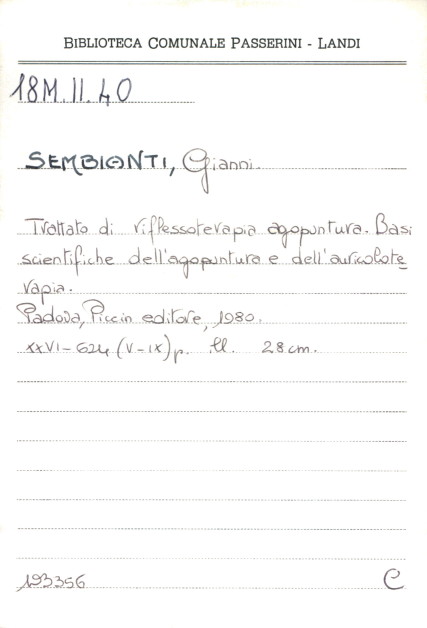 BIBLIOTECA COMUNALE PASSERINI - LANDI
18M.II.40
SEMBIANTI, Gianni.
Trattato di riflessoterapia agopuntura. Basi
scientifiche dell'agopuntura e dell'auricolote
rapia.
Padova, Piccin editore, 1980.
XXVI-624 (V-IX) p. ill. 28 cm.
193356 C